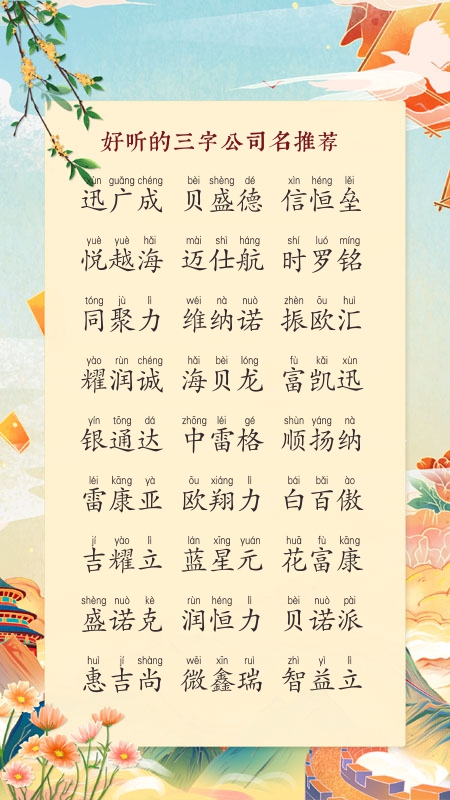 好听的三字公司名推荐
xùn guǎng chéng bèi shèng dé xìn héng lěi
迅广成 贝盛德 信恒垒
yuè yuè hǎi mài shì háng shí luó míng
悦越海 迈仕航 时罗铭
tóng jù lì wéi nà nuò zhèn ōu huì
同聚力 维纳诺 振欧汇
yào rùn chéng hǎi bèi lóng fù kǎi xùn
耀润诚 海贝龙 富凯迅
yín tōng dá zhōng léi gé shùn yáng nà
银通达 中雷格 顺扬纳
léi kāng yà ōu xiáng lì bái bǎi ào
雷康亚 欧翔力 白百傲
jí yào lì lán xīng yuán huā fù kāng
吉耀立 蓝星元 花富康
shèng nuò kè rùn héng lì bèi nuò pài
盛诺克 润恒力 贝诺派
huì jí shàng wēi xīn ruì zhì yì lì
惠吉尚 微鑫瑞 智益立